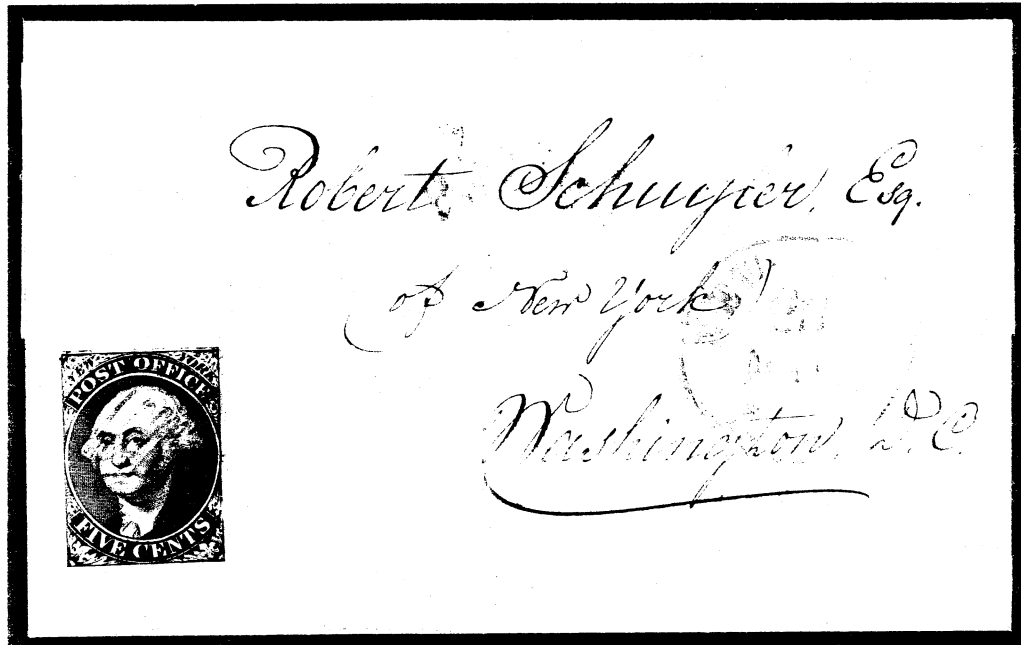 Robert Schuyler, Esq.
of New York
Washington, D.C.
NEW YORK
POST OFFICE
FIVE CENTS